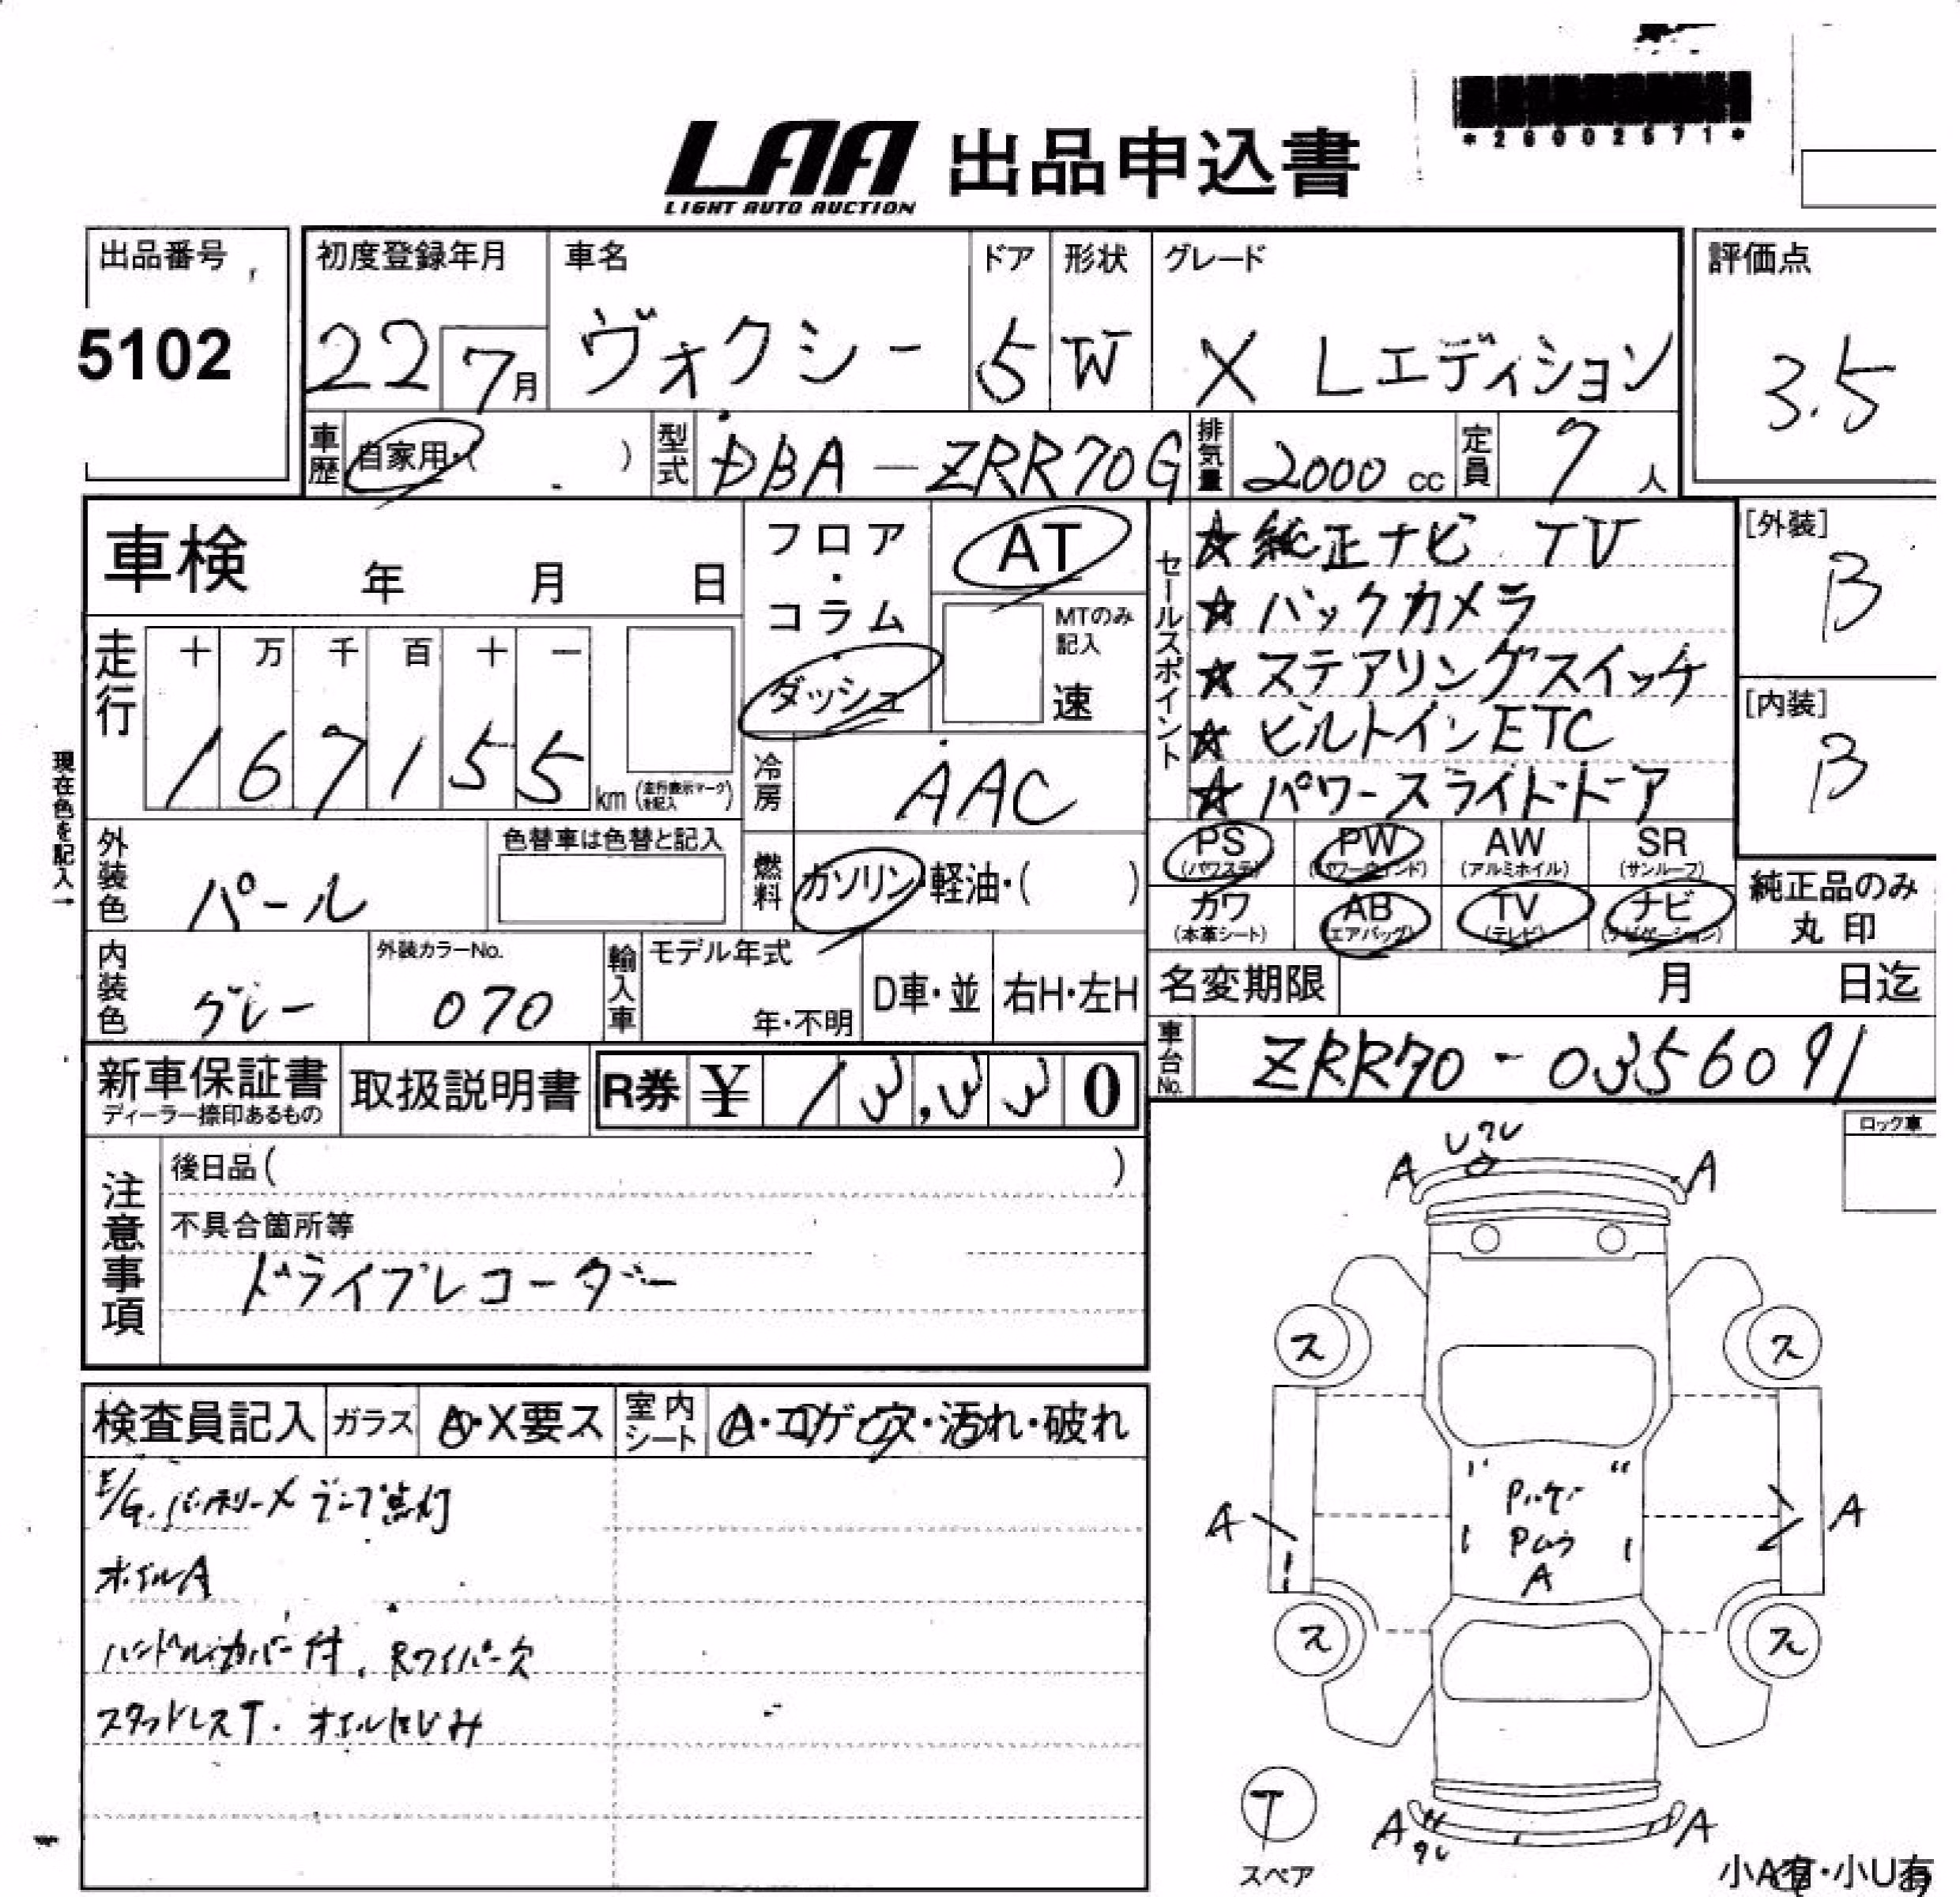 *26002571*
LAA 出品申込書
LIGHT AUTO AUCTION
出品番号
5102
初度登録年月
22 7月
車名
ヴォクシー
ドア
5
形状
W
グレード
X Lエディション
評価点
3.5
車歴 自家用・( )
型式 DBA-ZRR70G
排気量 2000 cc
定員 7人
車検 年 月 日
フロア・コラム・ダッシュ
AT
MTのみ記入
速
セールスポイント
☆純正ナビ TV
☆バックカメラ
☆ステアリングスイッチ
☆ビルトインETC
☆パワースライドドア
[外装]
B
[内装]
B
走行
十 万 千 百 十 一
1 6 7 1 5 5 km (走行表示マークを記入)
現在色を記入→
冷房 AAC
外装色 パール
色替車は色替と記入
燃料 ガソリン・軽油・( )
PS (パワステ)
PW (パワーウィンド)
AW (アルミホイル)
SR (サンルーフ)
カワ (本革シート)
AB (エアバッグ)
TV (テレビ)
ナビ (ナビゲーション)
純正品のみ丸印
内装色 グレー
外装カラーNo.
070
輸入車
モデル年式
年・不明
D車・並
右H・左H
名変期限 月 日迄
車台No. ZRR70-0356091
新車保証書
ディーラー捺印あるもの
取扱説明書
R券 ¥ 13,330
注意事項
後日品( )
不具合箇所等
ドライブレコーダー
ロック車
検査員記入
ガラス A・X要ス
室内シート A・コゲ・穴・汚れ・破れ
E/G.バッテリーメランプ点灯
ホイルA
ハンドルカバー付.Rワイパー欠
スタッドレスT.ホイルはじみ
A Uワレ A
ス ス
A A
A
ス ス
T
スペア
A ワレ A
小A有・小U有